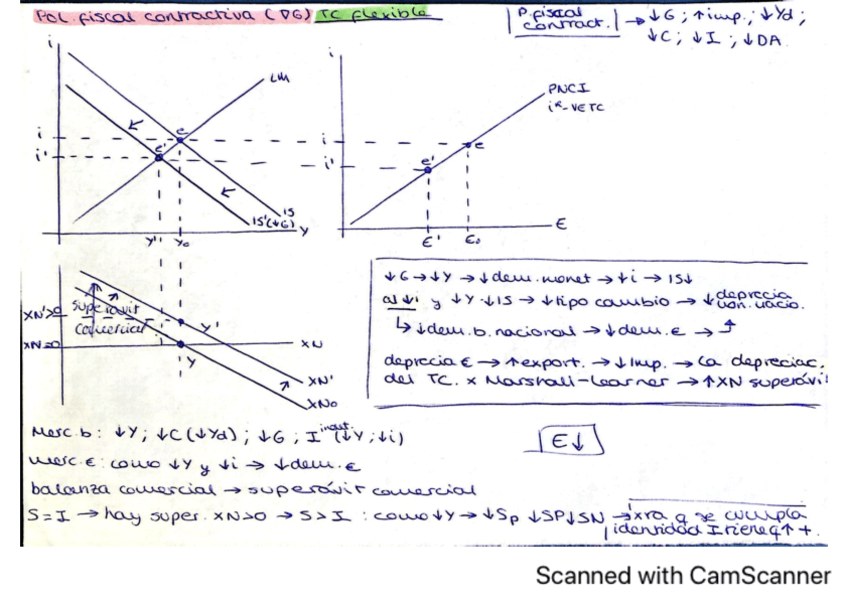 POL. fiscal contractiva (↓G) TC flexible
P. fiscal contract. → ↓G ; ↑imp.; ↓Yd ;
↓C; ↓I ; ↓DA
i
LM
e
e'
i
i'
IS
IS'(↓G)
Y
Y'
Y₀
i
PNCI
e
e'
i
i'
E
E'
E₀
XN'>0
XN=0
superávit
comercial
Y'
Y
XN
XN'
XN₀
↓G → ↓Y → ↓dem. monet → ↓i → IS↓
al ↓i y ↓Y ↓IS → ↓tipo cambio → ↓deprecia
↳ ↓dem. b. nacional → ↓dem. € →
deprecia € → ↑export. → ↓Imp. → La depreciac.
del TC. x Marshall-Learner → ↑XN superávit
Merc. b: ↓Y; ↓C (↓Yd); ↓G ; I (↓Y ; ↓i)
E↓
merc. €: como ↓Y y ↓i → ↓dem. €
balanza comercial → superávit comercial
S = I → hay super. XN>0 → S > I : como ↓Y → ↓Sp ↓SP ↓SN → xra q se cumpla
identidad I tiene q ↑ +.
Scanned with CamScanner